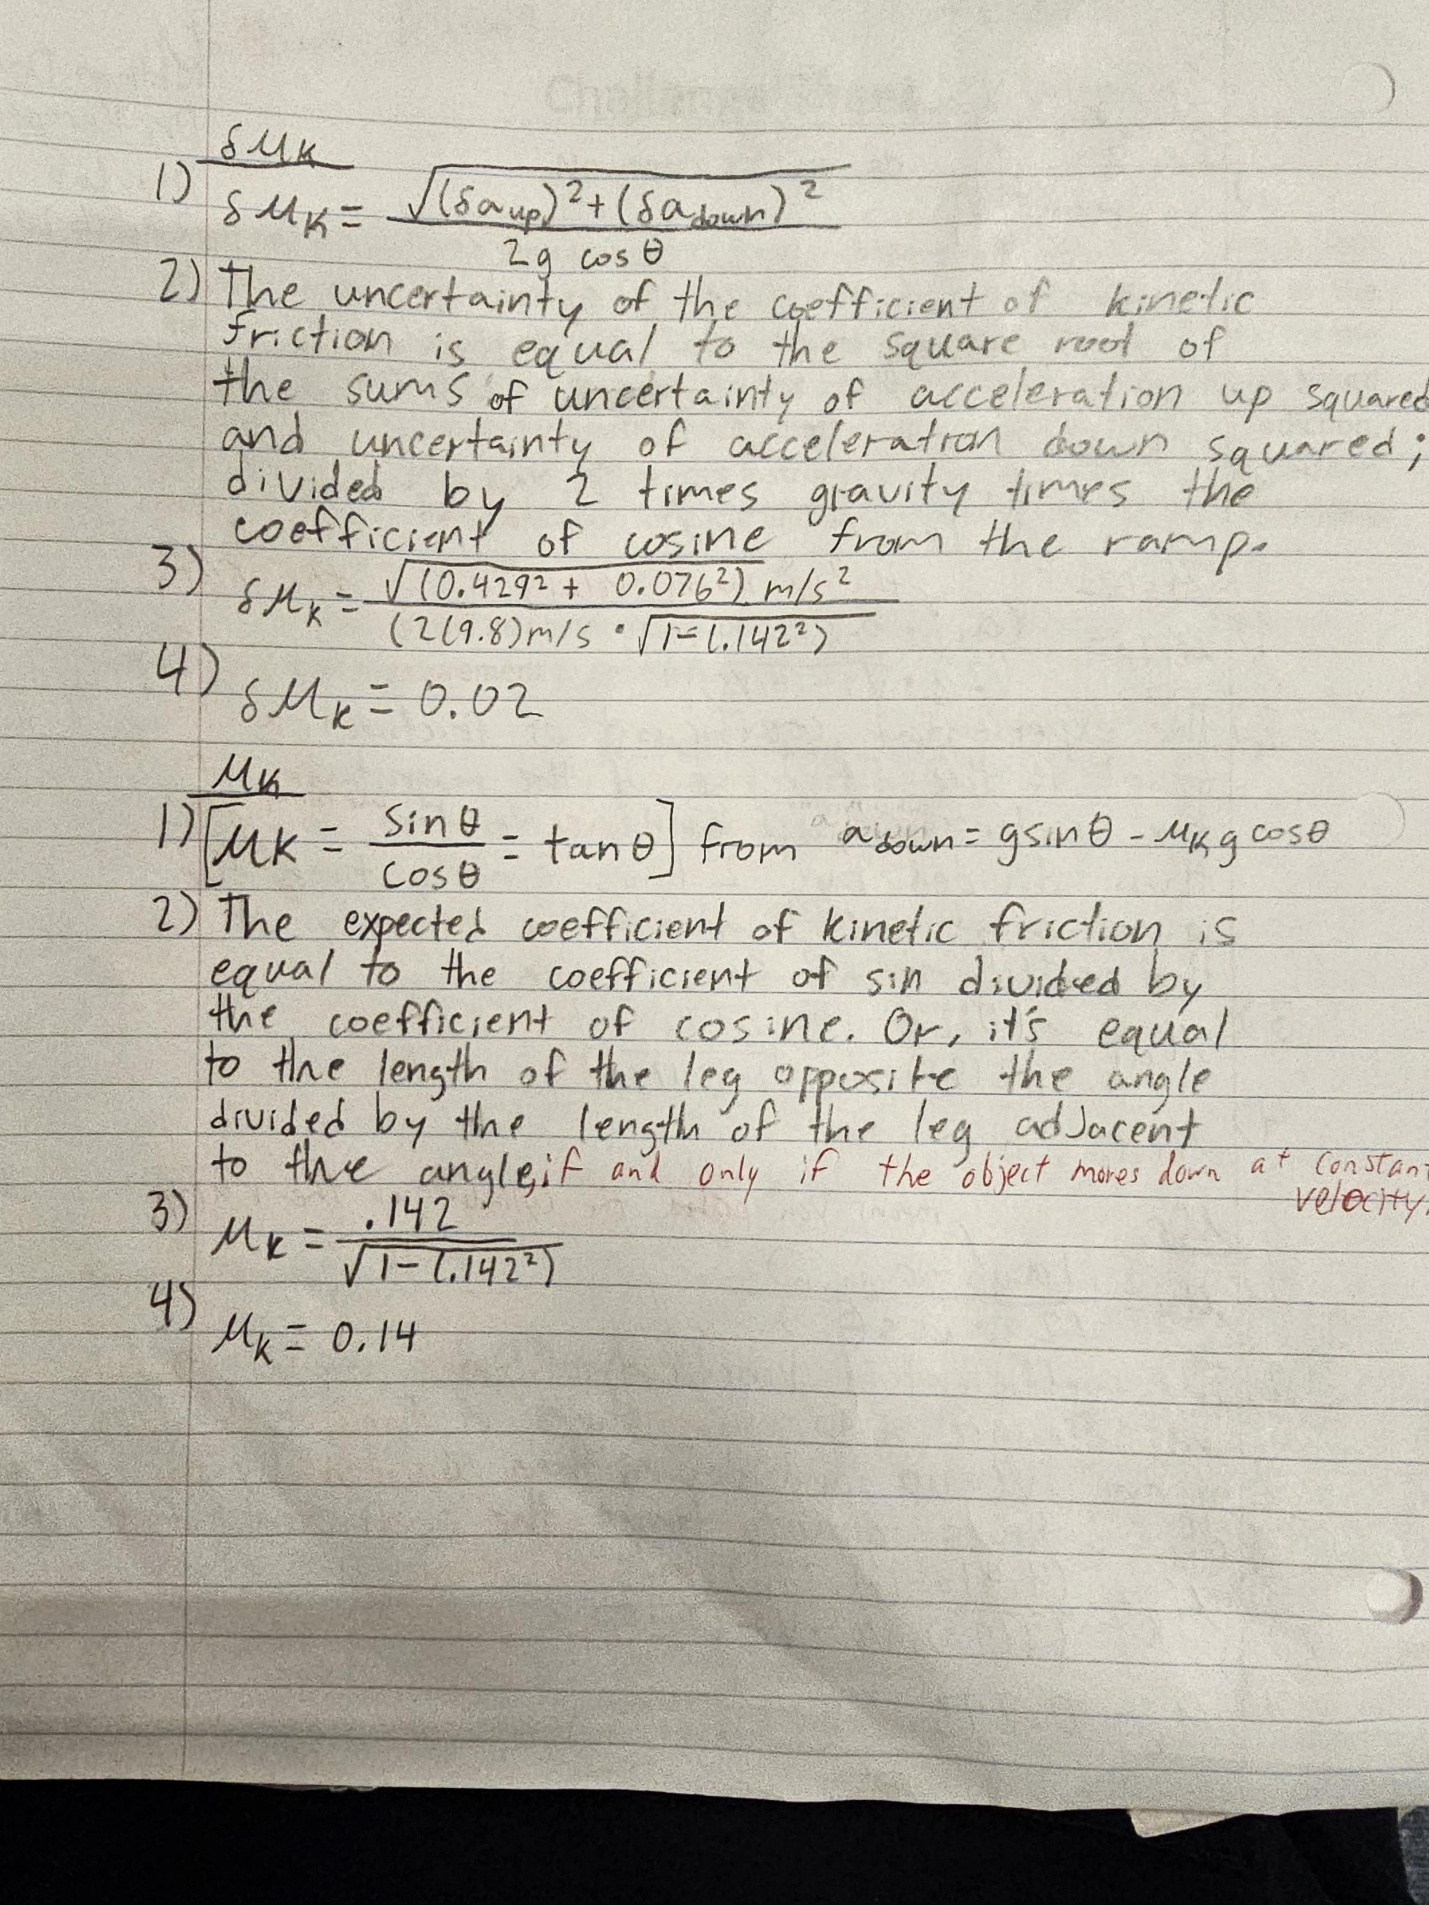 δμK
1) δμK = √(δaup)² + (δadown)² / 2g cosθ
2) The uncertainty of the coefficient of kinetic
friction is equal to the square root of
the sums of uncertainty of acceleration up squared
and uncertainty of acceleration down squared;
divided by 2 times gravity times the
coefficient of cosine from the ramp.
3) δμK = √(0.429² + 0.076²) m/s² / (2(9.8)m/s • √1-(.142²)
4) δμK = 0.02
μK
1) [μK = sinθ / cosθ = tanθ] from adown = gsinθ - μK g cosθ
2) The expected coefficient of kinetic friction is
equal to the coefficient of sin divided by
the coefficient of cosine. Or, it's equal
to the length of the leg opposite the angle
divided by the length of the leg adjacent
to the angle, if and only if the object moves down at constant
velocity.
3) μK = .142 / √1-(.142²)
4) μK = 0.14